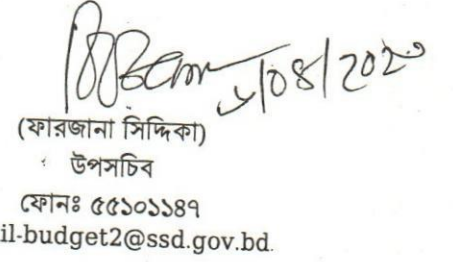 /০৪/২০২০
(ফারজানা সিদ্দিকা)
উপসচিব
ফোনঃ ৫৫১০১১৪৭
il-budget2@ssd.gov.bd.